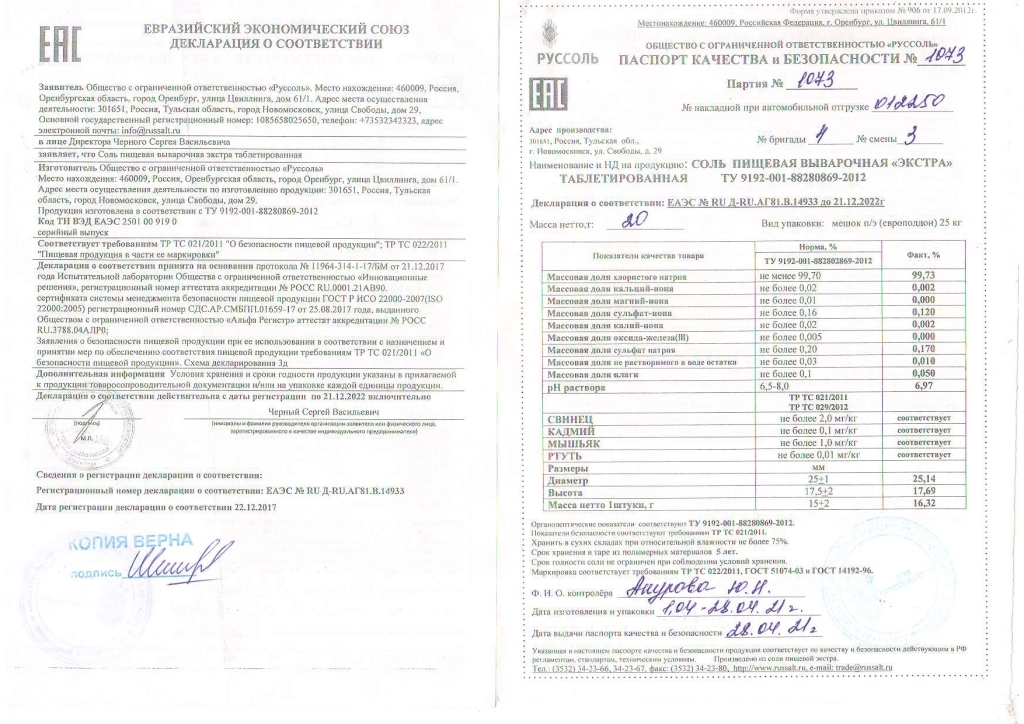 ЕВРАЗИЙСКИЙ ЭКОНОМИЧЕСКИЙ СОЮЗ
ДЕКЛАРАЦИЯ О СООТВЕТСТВИИ
Заявитель Общество с ограниченной ответственностью «Руссоль». Место нахождения: 460009, Россия,
Оренбургская область, город Оренбург, улица Цвиллинга, дом 61/1. Адрес места осуществления
деятельности: 301651, Россия, Тульская область, город Новомосковск, улица Свободы, дом 29.
Основной государственный регистрационный номер: 1085658025650, телефон: +73532342323, адрес
электронной почты: info@russalt.ru
в лице Директора Черного Сергея Васильевича
заявляет, что Соль пищевая выварочная экстра таблетированная
Изготовитель Общество с ограниченной ответственностью «Руссоль»
Место нахождения: 460009, Россия, Оренбургская область, город Оренбург, улица Цвиллинга, дом 61/1.
Адрес места осуществления деятельности по изготовлению продукции: 301651, Россия, Тульская
область, город Новомосковск, улица Свободы, дом 29.
Продукция изготовлена в соответствии с ТУ 9192-001-88280869-2012
Код ТН ВЭД ЕАЭС 2501 00 919 0
серийный выпуск
Соответствует требованиям ТР ТС 021/2011 "О безопасности пищевой продукции"; ТР ТС 022/2011
"Пищевая продукция в части ее маркировки"
Декларация о соответствии принята на основании протокола № 11964-314-1-17/БМ от 21.12.2017
года Испытательной лаборатории Общества с ограниченной ответственностью «Инновационные
решения», регистрационный номер аттестата аккредитации № РОСС RU.0001.21АВ90.
сертификата системы менеджмента безопасности пищевой продукции ГОСТ Р ИСО 22000-2007(ISO
22000:2005) регистрационный номер СДС.АР.СМБПП.01659-17 от 25.08.2017 года, выданного
Обществом с ограниченной ответственностью «Альфа Регистр» аттестат аккредитации № РОСС
RU.3788.04АЛР0;
Заявления о безопасности пищевой продукции при ее использовании в соответствии с назначением и
принятии мер по обеспечению соответствия пищевой продукции требованиям ТР ТС 021/2011 «О
безопасности пищевой продукции». Схема декларирования 3д
Дополнительная информация Условия хранения и срока годности продукции указаны в прилагаемой
к продукции товаросопроводительной документации и/или на упаковке каждой единицы продукции.
Декларация о соответствии действительна с даты регистрации по 21.12.2022 включительно
Черный Сергей Васильевич
(подпись)
(инициалы и фамилия руководителя организации-заявителя или физического лица,
зарегистрированного в качестве индивидуального предпринимателя)
М.П.
Сведения о регистрации декларации о соответствии:
Регистрационный номер декларации о соответствии: ЕАЭС № RU Д-RU.АГ81.В.14933
Дата регистрации декларации о соответствии 22.12.2017
КОПИЯ ВЕРНА
подпись
Форма утверждена приказом № 906 от 17.09.2012г.
Местонахождение: 460009, Российская Федерация, г. Оренбург, ул. Цвиллинга, 61/1
РУССОЛЬ
ОБЩЕСТВО С ОГРАНИЧЕННОЙ ОТВЕТСТВЕННОСТЬЮ «РУССОЛЬ»
ПАСПОРТ КАЧЕСТВА и БЕЗОПАСНОСТИ № 1073
Партия № 1073
№ накладной при автомобильной отгрузке 012250
Адрес производства:
301651, Россия, Тульская обл.,
г. Новомосковск, ул. Свободы, д. 29
№ бригады 4 № смены 3
Наименование и НД на продукцию: СОЛЬ ПИЩЕВАЯ ВЫВАРОЧНАЯ «ЭКСТРА»
ТАБЛЕТИРОВАННАЯ ТУ 9192-001-88280869-2012
Декларация о соответствии: ЕАЭС № RU Д-RU.АГ81.В.14933 до 21.12.2022г
Масса нетто,т: 20 Вид упаковки: мешок п/э (европоддон) 25 кг
Показатели качества товара Норма, % Факт, %
ТУ 9192-001-882802869-2012
Массовая доля хлористого натрия не менее 99,70 99,73
Массовая доля кальций-иона не более 0,02 0,002
Массовая доля магний-иона не более 0,01 0,000
Массовая доля сульфат-иона не более 0,16 0,120
Массовая доля калий-иона не более 0,02 0,002
Массовая доля оксида-железа(III) не более 0,005 0,000
Массовая доля сульфат натрия не более 0,20 0,170
Массовая доля не растворимого в воде остатка не более 0,03 0,010
Массовая доля влаги не более 0,1 0,050
pH раствора 6,5-8,0 6,97
ТР ТС 021/2011
ТР ТС 029/2012
СВИНЕЦ не более 2,0 мг/кг соответствует
КАДМИЙ не более 0,1 мг/кг соответствует
МЫШЬЯК не более 1,0 мг/кг соответствует
РТУТЬ не более 0,01 мг/кг соответствует
Размеры мм
Диаметр 25±1 25,14
Высота 17,5±2 17,69
Масса нетто 1штуки, г 15±2 16,32
Органолептические показатели соответствуют ТУ 9192-001-88280869-2012.
Показатели безопасности соответствуют требованиям ТР ТС 021/2011.
Хранить в сухих складах при относительной влажности не более 75%.
Срок хранения в таре из полимерных материалов 5 лет.
Срок годности соли не ограничен при соблюдении условий хранения.
Маркировка соответствует требованиям ТР ТС 022/2011, ГОСТ 51074-03 и ГОСТ 14192-96.
Ф. И. О. контролёра Анурова Ю.Н.
Дата изготовления и упаковки 1,04-28.04.21г.
Дата выдачи паспорта качества и безопасности 28.04.21г
Указанная в настоящем паспорте качества и безопасности продукция соответствует по качеству и безопасности действующим в РФ
регламентам, стандартам, техническим условиям. Произведено из соли пищевой экстра.
Тел.: (3532) 34-23-66, 34-23-67, факс: (3532) 34-23-80, http://www.russalt.ru, e-mail: trade@russalt.ru